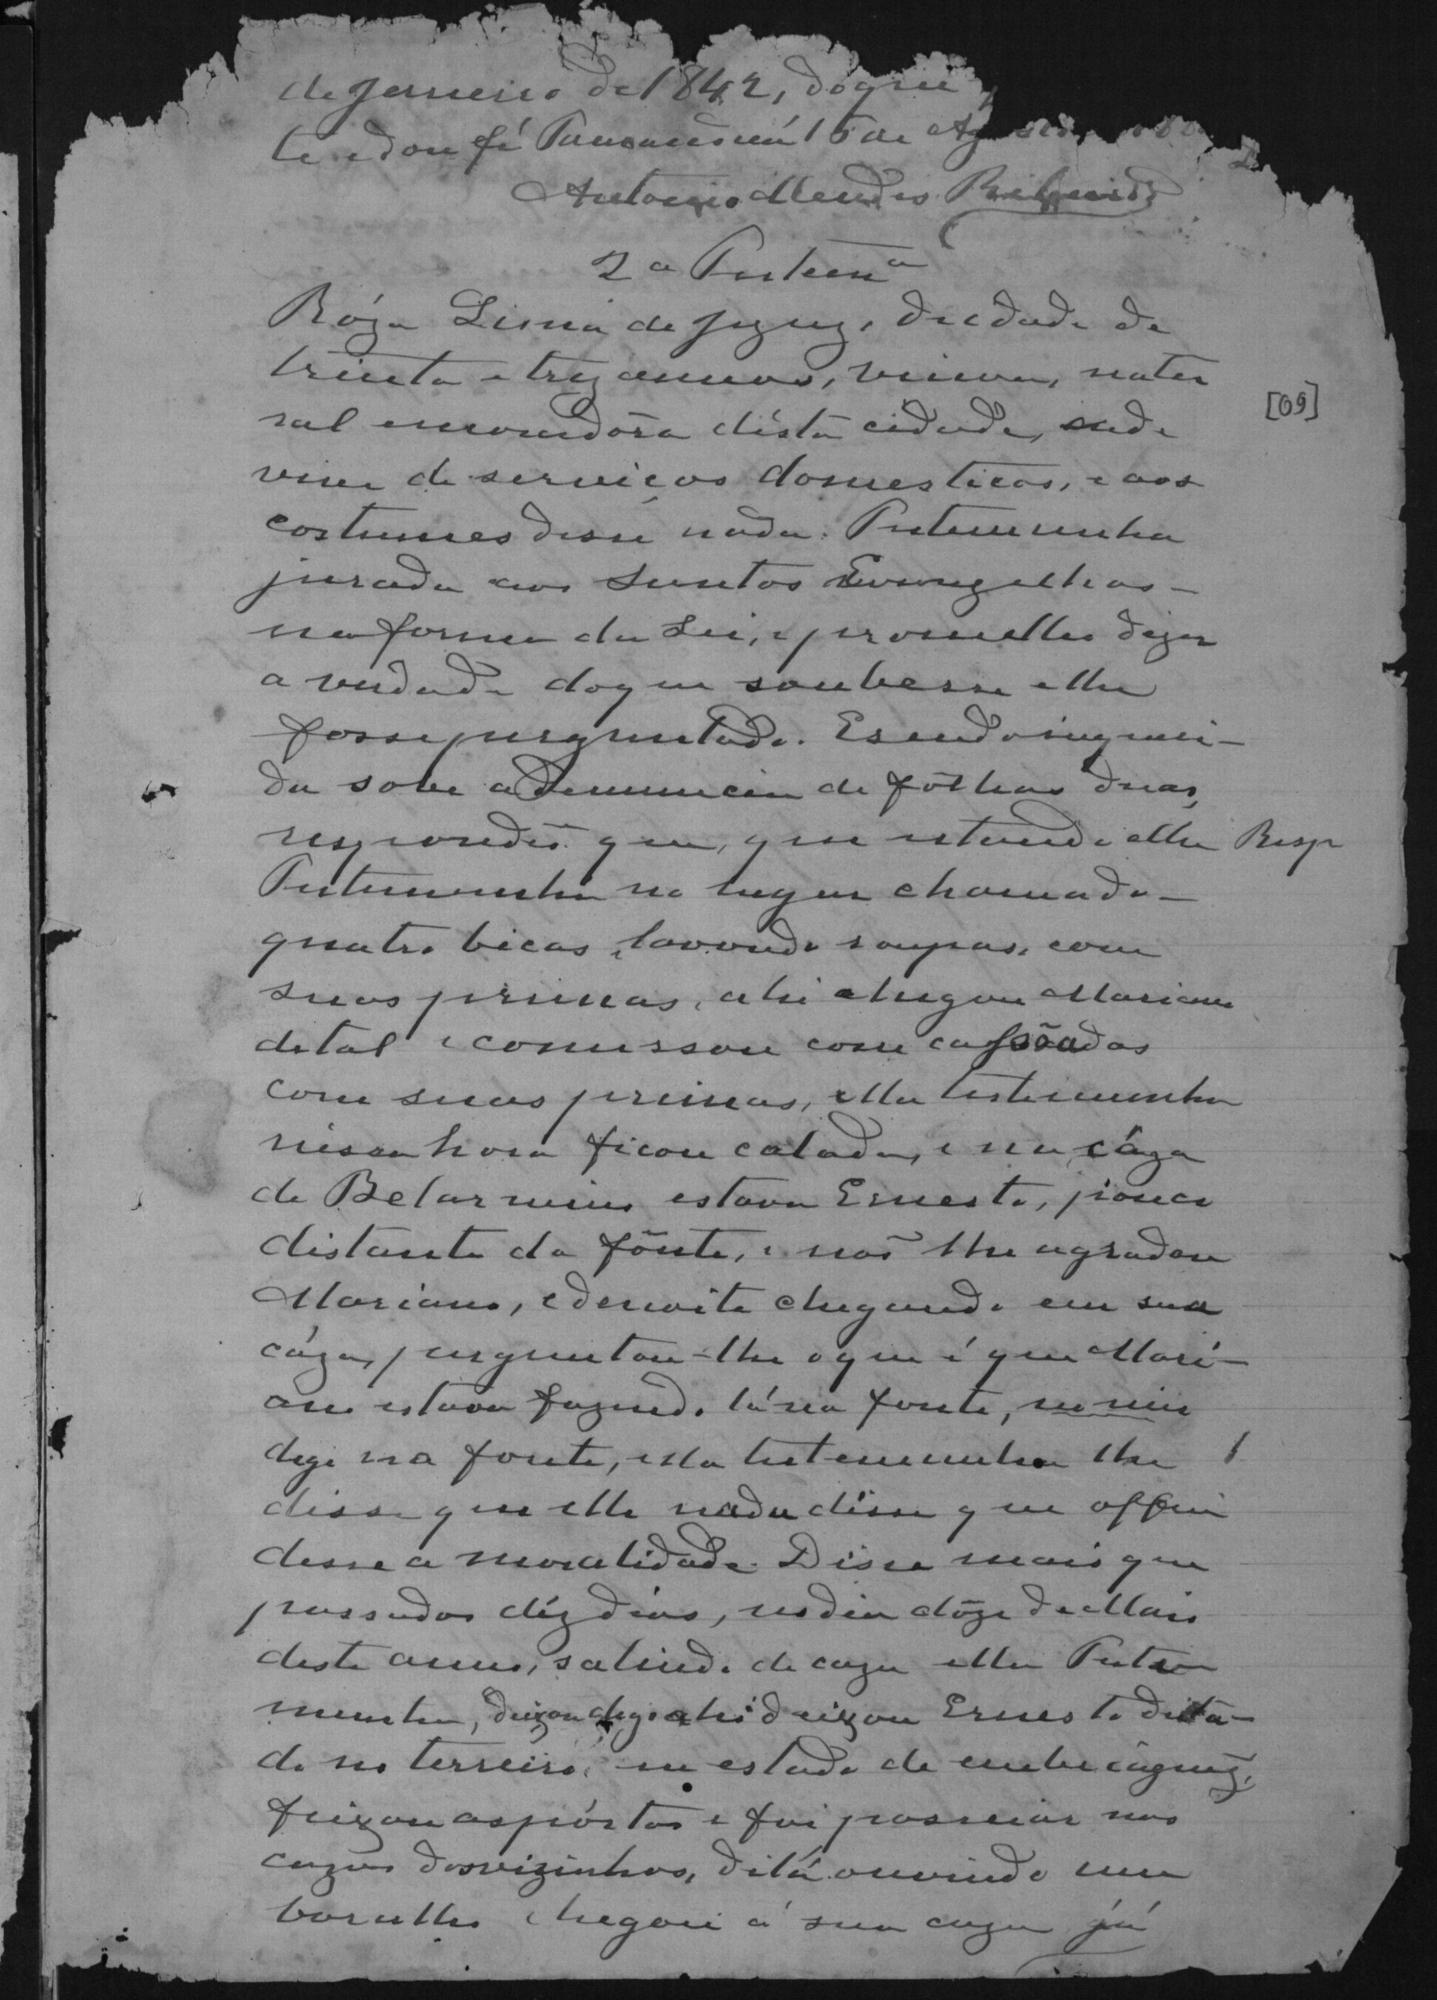 de Janeiro de 1842, do que
te e dou fé Paranaguá 15 de Ag
Antonio Mendes Ribeiro
2a Testema
Róza Lima de Jezuz, de edade de
trinta e trez annos, viuva, natu
ral e moradôra désta cidade, onde
vive de serviços domesticos, e aos
costumes disse nada. Testemunha
jurada aos Santos Evangelhos -
na forma da Lei, e prometteo dizer
a verdade do que soubesse e lhe
fosse perguntado. E sendo inqueri-
da sobre a denuncia de fôlhas duas,
respondeo que, que estando ella
Resp
Testemunha no lugar chamado -
quatro bicas, lavando roupas, com
suas primas, ahi chegou Mariano
de tal e comessou com cassôadas
com suas primas, ella testemunha
néssa hora ficou calada, e na cáza
de Belarmino estava Ernesto, pouco
distante da fônte, e não lhe agradou
Mariano, e de noite chegando em sua
cáza, perguntou-lhe o que é que Mari-
ano estava fazendo lá na fonte,
digo na fonte, ella testemunha lhe
disse que elle nada disse que offen
desse a moralidade. Disse mais que
passados déz dias, no dia dôze de Maio
deste anno, sahindo de caza ella Teste
munha, deixou digo ahi deixou Ernesto deita-
do no terreiro, em estado de embriaguez,
feixou as pórtas e foi passeiar nas
cazas dos vizinhos, de lá ouvindo um
barulho chegou á sua caza já
[09]